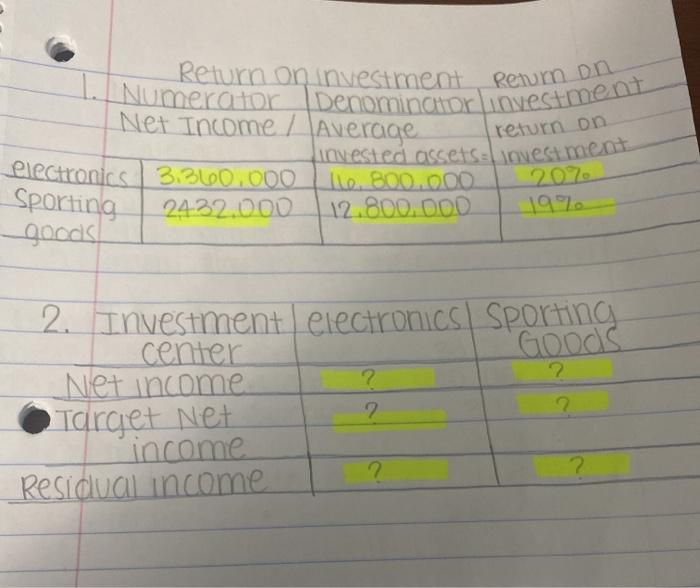 Return on investment Return on
1. Numerator Denominator investment
Net Income / Average return on
invested assets = investment
electronics 3.360,000 16,800,000 20%
Sporting 2432,000 12,800,000 19%
goods
2. Investment electronics Sporting
center Goods
Net income ? ?
Target Net ? ?
income
Residual income ? ?